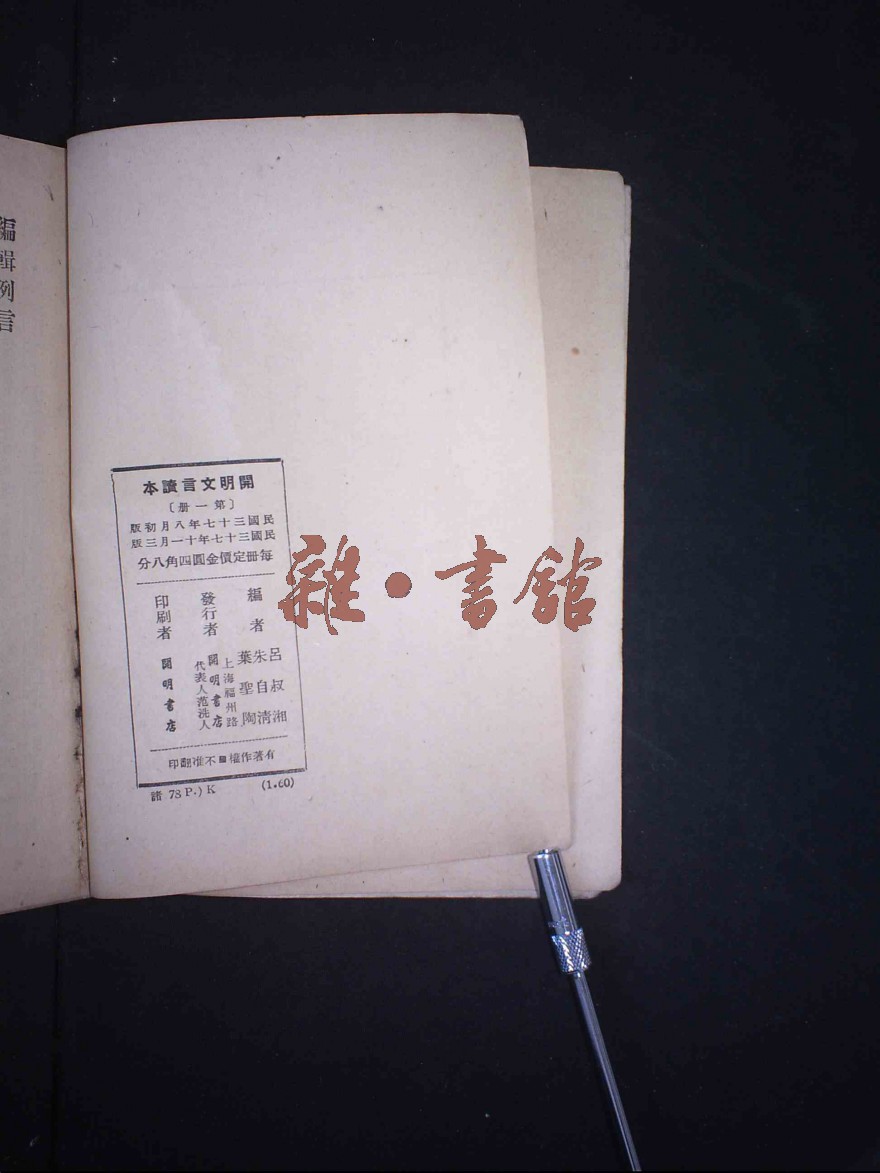 編輯例言
開明文言讀本
〔第一册〕
民國三十七年八月初版
民國三十七年十一月三版
每册定價金圓四角八分
編者
呂叔湘
朱自清
葉聖陶
發行者
上海福州路
開明書店
代表人范洗人
印刷者
開明書店
有著作權不准翻印
(1.60)
諸 73 P.) K
雜・書館